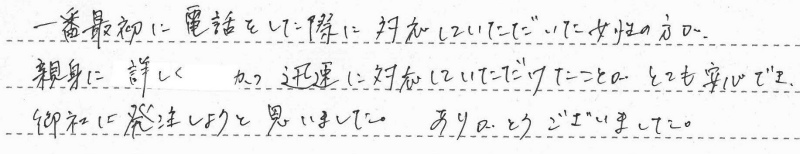 一番最初に電話をした際に対応していただいた女性の方が、
親身に詳しく かつ迅速に対応していただけたことが とても安心でき、
御社に発注しようと思いました。 ありがとうございました。